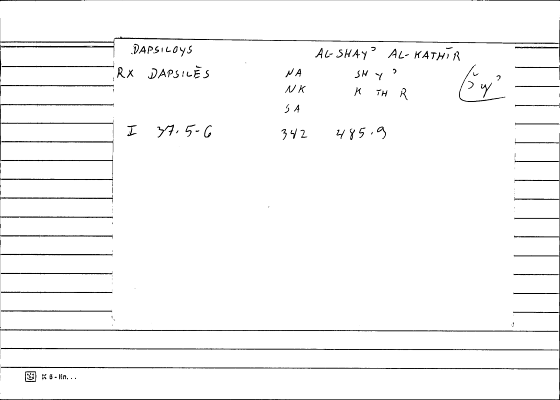 DAPSILOYS AL-SHAYʾ AL-KATHĪR
RX DAPSILĒS NA SH Y ʾ
NK K TH R
SA
I 37.5-6 342 485.9